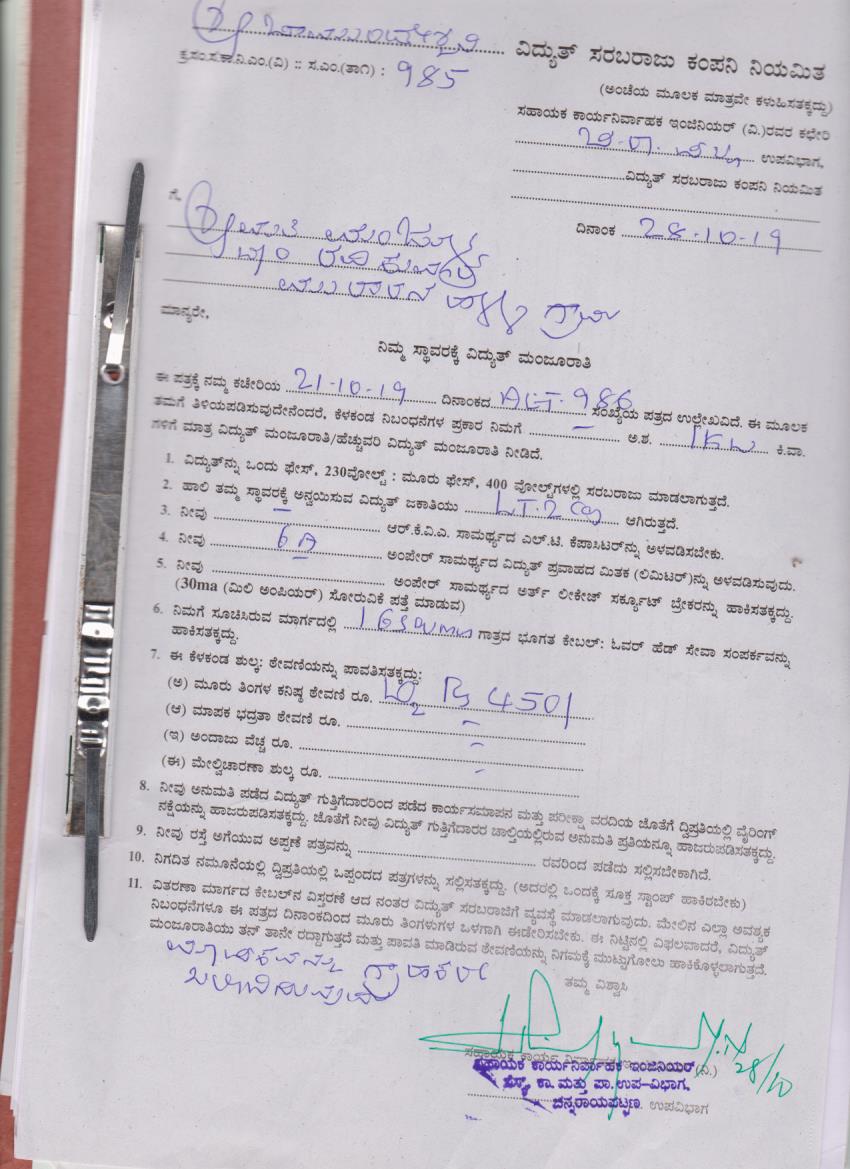 ವಿದ್ಯುತ್ ಸರಬರಾಜು ಕಂಪನಿ ನಿಯಮಿತ
ಕ್ರ.ಸಂ.ಸ.ಕಾ.ನಿ.ಎಂ.(ವಿ) :: ಸ.ಎಂ.(ತಾ೧) : 985
(ಅಂಚೆಯ ಮೂಲಕ ಮಾತ್ರವೇ ಕಳುಹಿಸತಕ್ಕದ್ದು)
ಸಹಾಯಕ ಕಾರ್ಯನಿರ್ವಾಹಕ ಇಂಜಿನಿಯರ್ (ವಿ.)ರವರ ಕಛೇರಿ
ಉಪವಿಭಾಗ,
ವಿದ್ಯುತ್ ಸರಬರಾಜು ಕಂಪನಿ ನಿಯಮಿತ
ಗೆ,
ದಿನಾಂಕ 28-10-19
ಶ್ರೀಮತಿ
ಗ್ರಾಮ
ಮಾನ್ಯರೇ,
ನಿಮ್ಮ ಸ್ಥಾವರಕ್ಕೆ ವಿದ್ಯುತ್ ಮಂಜೂರಾತಿ
ಈ ಪತ್ರಕ್ಕೆ ನಮ್ಮ ಕಚೇರಿಯ 21-10-19 ದಿನಾಂಕದ 986 ಸಂಖ್ಯೆಯ ಪತ್ರದ ಉಲ್ಲೇಖವಿದೆ. ಈ ಮೂಲಕ
ತಮಗೆ ತಿಳಿಯಪಡಿಸುವುದೇನೆಂದರೆ, ಕೆಳಕಂಡ ನಿಬಂಧನೆಗಳ ಪ್ರಕಾರ ನಿಮಗೆ – ಅ.ಶ. 1KW ಕಿ.ವಾ.
ಗಳಿಗೆ ಮಾತ್ರ ವಿದ್ಯುತ್ ಮಂಜೂರಾತಿ/ಹೆಚ್ಚುವರಿ ವಿದ್ಯುತ್ ಮಂಜೂರಾತಿ ನೀಡಿದೆ.
1. ವಿದ್ಯುತ್‌ನ್ನು ಒಂದು ಫೇಸ್, 230ವೋಲ್ಟ್ : ಮೂರು ಫೇಸ್, 400 ವೋಲ್ಟ್‌ಗಳಲ್ಲಿ ಸರಬರಾಜು ಮಾಡಲಾಗುತ್ತದೆ.
2. ಹಾಲಿ ತಮ್ಮ ಸ್ಥಾವರಕ್ಕೆ ಅನ್ವಯಿಸುವ ವಿದ್ಯುತ್ ಜಕಾತಿಯು LT-2(a) ಆಗಿರುತ್ತದೆ.
3. ನೀವು – ಆರ್.ಕೆ.ವಿ.ಎ. ಸಾಮರ್ಥ್ಯದ ಎಲ್.ಟಿ. ಕೆಪಾಸಿಟರ್‌ನ್ನು ಅಳವಡಿಸಬೇಕು.
4. ನೀವು 6A ಅಂಪೇರ್ ಸಾಮರ್ಥ್ಯದ ವಿದ್ಯುತ್ ಪ್ರವಾಹದ ಮಿತಕ (ಲಿಮಿಟರ್)ನ್ನು ಅಳವಡಿಸುವುದು.
5. ನೀವು – ಅಂಪೇರ್ ಸಾಮರ್ಥ್ಯದ ಅರ್ತ್ ಲೀಕೇಜ್ ಸರ್ಕ್ಯೂಟ್ ಬ್ರೇಕರನ್ನು ಹಾಕಿಸತಕ್ಕದ್ದು.
(30ma (ಮಿಲಿ ಅಂಪಿಯರ್) ಸೋರುವಿಕೆ ಪತ್ತೆ ಮಾಡುವ)
6. ನಿಮಗೆ ಸೂಚಿಸಿರುವ ಮಾರ್ಗದಲ್ಲಿ ಗಾತ್ರದ ಭೂಗತ ಕೇಬಲ್: ಓವರ್ ಹೆಡ್ ಸೇವಾ ಸಂಪರ್ಕವನ್ನು
ಹಾಕಿಸತಕ್ಕದ್ದು.
7. ಈ ಕೆಳಕಂಡ ಶುಲ್ಕ: ಠೇವಣಿಯನ್ನು ಪಾವತಿಸತಕ್ಕದ್ದು:
(ಅ) ಮೂರು ತಿಂಗಳ ಕನಿಷ್ಠ ಠೇವಣಿ ರೂ. Rs 450/
(ಆ) ಮಾಪಕ ಭದ್ರತಾ ಠೇವಣಿ ರೂ. –
(ಇ) ಅಂದಾಜು ವೆಚ್ಚ ರೂ. –
(ಈ) ಮೇಲ್ವಿಚಾರಣಾ ಶುಲ್ಕ ರೂ. –
8. ನೀವು ಅನುಮತಿ ಪಡೆದ ವಿದ್ಯುತ್ ಗುತ್ತಿಗೆದಾರರಿಂದ ಪಡೆದ ಕಾರ್ಯಸಮಾಪನ ಮತ್ತು ಪರೀಕ್ಷಾ ವರದಿಯ ಜೊತೆಗೆ ದ್ವಿಪ್ರತಿಯಲ್ಲಿ ವೈರಿಂಗ್
ನಕ್ಷೆಯನ್ನು ಹಾಜರುಪಡಿಸತಕ್ಕದ್ದು. ಜೊತೆಗೆ ನೀವು ವಿದ್ಯುತ್ ಗುತ್ತಿಗೆದಾರರ ಚಾಲ್ತಿಯಲ್ಲಿರುವ ಅನುಮತಿ ಪ್ರತಿಯನ್ನೂ ಹಾಜರುಪಡಿಸತಕ್ಕದ್ದು.
9. ನೀವು ರಸ್ತೆ ಅಗೆಯುವ ಅಪ್ಪಣೆ ಪತ್ರವನ್ನು ರವರಿಂದ ಪಡೆದು ಸಲ್ಲಿಸಬೇಕಾಗಿದೆ.
10. ನಿಗದಿತ ನಮೂನೆಯಲ್ಲಿ ದ್ವಿಪ್ರತಿಯಲ್ಲಿ ಒಪ್ಪಂದದ ಪತ್ರಗಳನ್ನು ಸಲ್ಲಿಸತಕ್ಕದ್ದು. (ಅದರಲ್ಲಿ ಒಂದಕ್ಕೆ ಸೂಕ್ತ ಸ್ಟಾಂಪ್ ಹಾಕಿರಬೇಕು)
11. ವಿತರಣಾ ಮಾರ್ಗದ ಕೇಬಲ್‌ನ ವಿಸ್ತರಣೆ ಆದ ನಂತರ ವಿದ್ಯುತ್ ಸರಬರಾಜಿಗೆ ವ್ಯವಸ್ಥೆ ಮಾಡಲಾಗುವುದು. ಮೇಲಿನ ಎಲ್ಲಾ ಅವಶ್ಯಕ
ನಿಬಂಧನೆಗಳೂ ಈ ಪತ್ರದ ದಿನಾಂಕದಿಂದ ಮೂರು ತಿಂಗಳುಗಳ ಒಳಗಾಗಿ ಈಡೇರಿಸಬೇಕು. ಈ ನಿಟ್ಟಿನಲ್ಲಿ ವಿಫಲವಾದರೆ, ವಿದ್ಯುತ್
ಮಂಜೂರಾತಿಯು ತನ್ ತಾನೇ ರದ್ದಾಗುತ್ತದೆ ಮತ್ತು ಪಾವತಿ ಮಾಡಿರುವ ಠೇವಣಿಯನ್ನು ನಿಗಮಕ್ಕೆ ಮುಟ್ಟುಗೋಲು ಹಾಕಿಕೊಳ್ಳಲಾಗುತ್ತದೆ.
ತಮ್ಮ ವಿಶ್ವಾಸಿ
28/10
ಸಹಾಯಕ ಕಾರ್ಯ ನಿರ್ವಾಹಕ ಇಂಜಿನಿಯರ್ (ವಿ.)
ಸಹಾಯಕ ಕಾರ್ಯನಿರ್ವಾಹಕ ಇಂಜಿನಿಯರ್
ಸೆಸ್ಕ್, ಕಾ. ಮತ್ತು ಪಾ. ಉಪ-ವಿಭಾಗ,
ಚನ್ನರಾಯಪಟ್ಟಣ. ಉಪವಿಭಾಗ